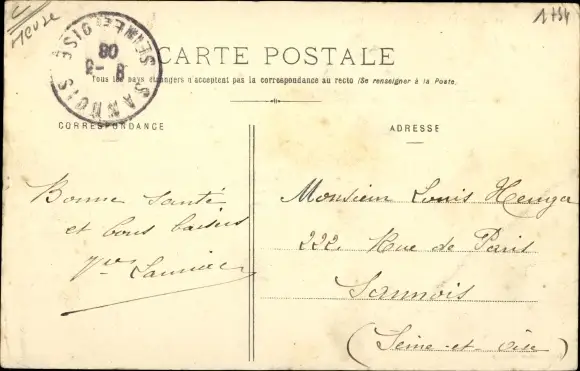 Meuse
1734
SANNOIS SEINE-ET-OISE
8 -3
08
CARTE POSTALE
Tous les pays étrangers n'acceptent pas la correspondance au recto (Se renseigner à la Poste.
CORRESPONDANCE
ADRESSE
Bonne santé
et bons baisers
Monsieur Louis
222. Rue de Paris
Sannois
(Seine-et-Oise)